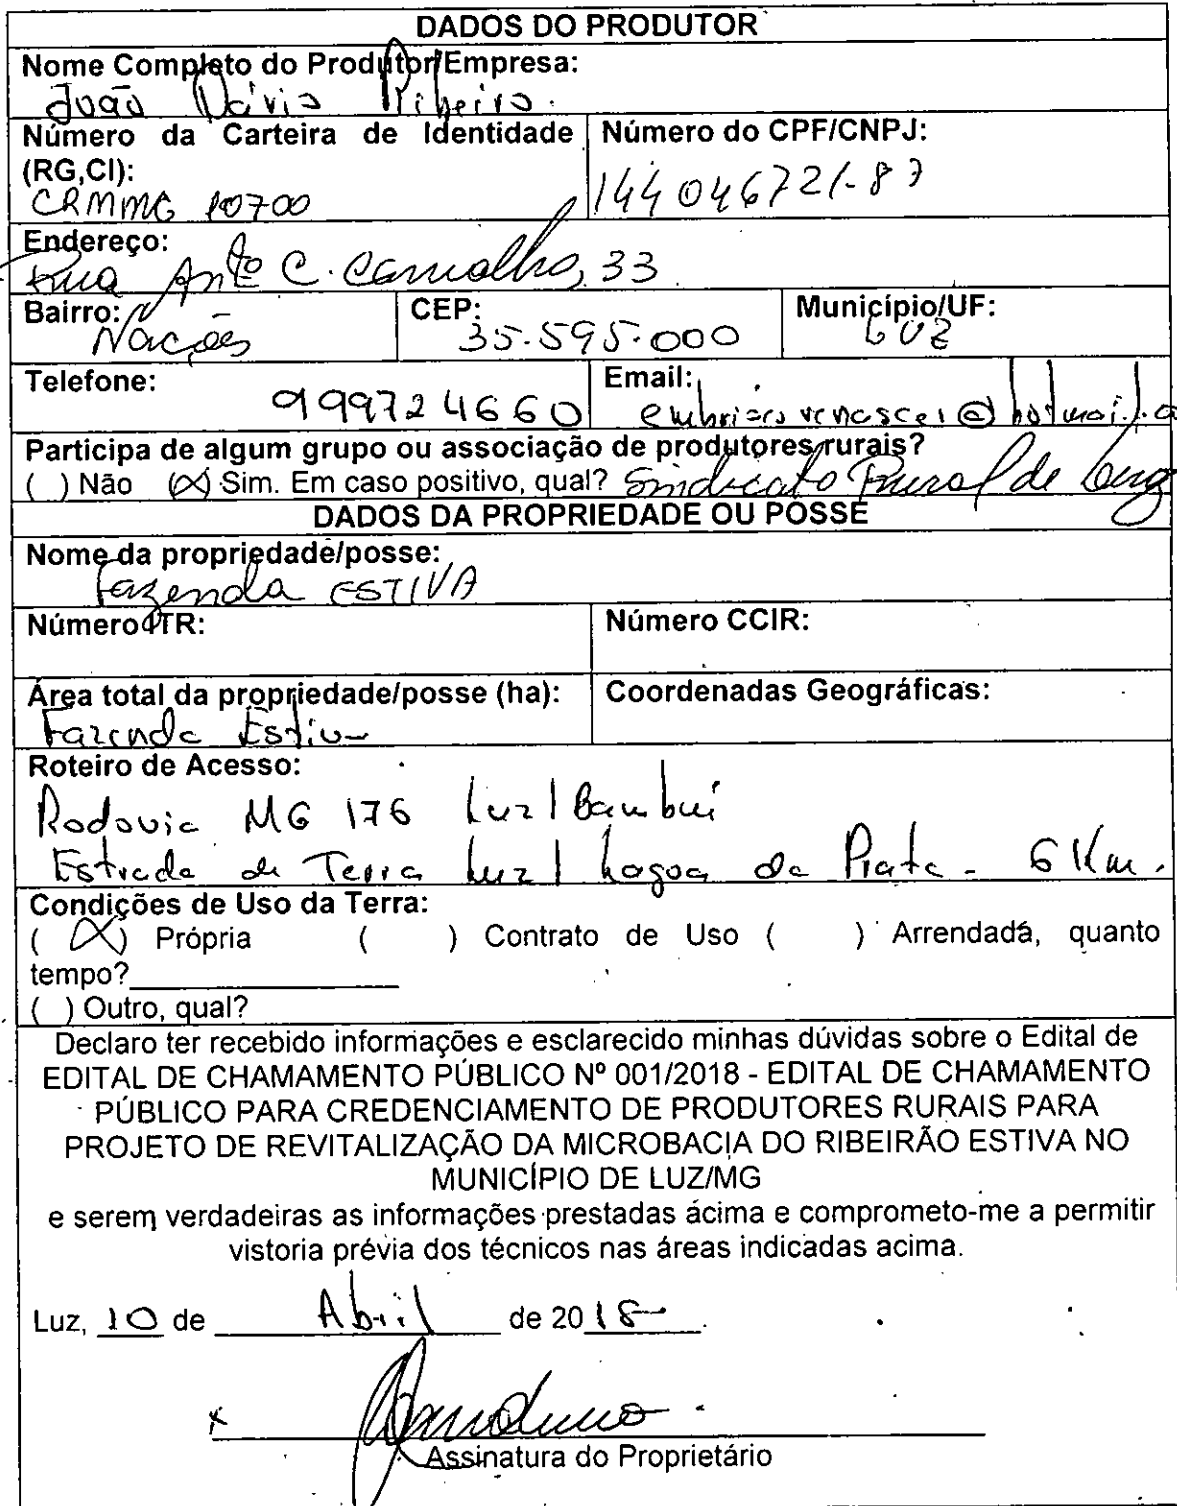 DADOS DO PRODUTOR
Nome Completo do Produtor/Empresa:
João Ribeiro.
Número da Carteira de Identidade (RG,CI):
CRMMG 10700
Número do CPF/CNPJ:
144046721-87
Endereço:
Rua Antº C. Carvalho, 33
Bairro:
Nações
CEP:
35.595.000
Município/UF:
LUZ
Telefone:
999724660
Email:
@hotmail.
Participa de algum grupo ou associação de produtores rurais?
( ) Não (X) Sim. Em caso positivo, qual? Sindicato Rural de Luz
DADOS DA PROPRIEDADE OU POSSE
Nome da propriedade/posse:
Fazenda ESTIVA
Número ITR:
Número CCIR:
Área total da propriedade/posse (ha):
Fazenda Estiva
Coordenadas Geográficas:
Roteiro de Acesso:
Rodovia MG 176 Luz/Bambuí
Estrada de Terra Luz/Lagoa da Prata - 6 Km.
Condições de Uso da Terra:
( X ) Própria ( ) Contrato de Uso ( ) Arrendada, quanto
tempo?
( ) Outro, qual?
Declaro ter recebido informações e esclarecido minhas dúvidas sobre o Edital de
EDITAL DE CHAMAMENTO PÚBLICO Nº 001/2018 - EDITAL DE CHAMAMENTO
PÚBLICO PARA CREDENCIAMENTO DE PRODUTORES RURAIS PARA
PROJETO DE REVITALIZAÇÃO DA MICROBACIA DO RIBEIRÃO ESTIVA NO
MUNICÍPIO DE LUZ/MG
e serem verdadeiras as informações prestadas acima e comprometo-me a permitir
vistoria prévia dos técnicos nas áreas indicadas acima.
Luz, 10 de Abril de 2018
x
Assinatura do Proprietário